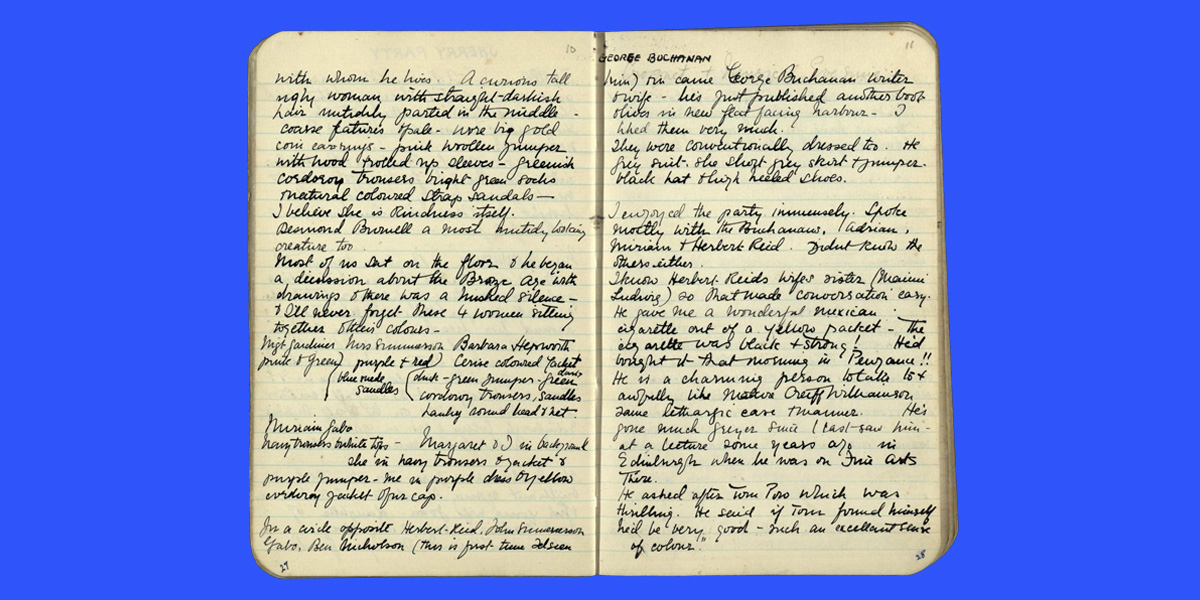 10
with whom he lives. A curious tall
ugly woman with straight-darkish
hair untidily parted in the middle -
coarse fatures & pale - wore big gold
coin earrings - pink woollen jumper
with hood & rolled up sleeves - greenish
corderoy trousers bright green socks
& natural coloured strap sandals -
I believe she is kindness itself.
Desmond Burnell a most untidy looking
creature too
Most of us sat on the floor & he began
a discussion about the Bronze Age with
drawings & there was a hushed silence -
& I'll never forget these 4 women sitting
together & their colours -
Mgt Gardiner Mrs Summerson Barbara Hepworth
pink & green) purple & red) Cerise coloured Jacket
(blue suede (dark-green jumper - green
sandles corderoy trousers, sandles
hanky round head & net.
Miriam Gabo
Navy trousers & white top - Margaret & I in background
she in navy trousers & jacket &
purple jumper - me in purple dress & yellow
corderoy jacket & fur cap.
In a circle opposite Herbert-Reid, John Summerson
Gabo, Ben Nicholson (this is first time I'd seen
27
11
GEORGE BUCHANAN
him) & in came George Buchanan writer
& wife - he's just published another book
& lives in new flat facing harbour - I
liked them very much.
They were conventionally dressed too. He
grey suit. she short grey skirt & jumper.
black hat & high heeled shoes.
I enjoyed the party immensely. Spoke
mostly with the Buchanans, Adrian,
Miriam & Herbert Reid. Didnt know the
others either.
I know Herbert Reids wifes sister (
Ludwig) so that made conversation easy.
He gave me a wonderful mexican
cigarette out of a yellow packet - The
cigarette was black & strong! He'd
bought it that morning in Penzance!!
He is a charming person to talk to &
awfully like Williamson
same lethargic ease & manner. He's
gone much greyer since I last saw him -
at a lecture some years ago in
Edinburgh when he was on Fine Arts
There.
He asked after Tom Pow which was
thrilling. He said if Tom found himself
he'd be very good - such an excellent sense
of colour."
28